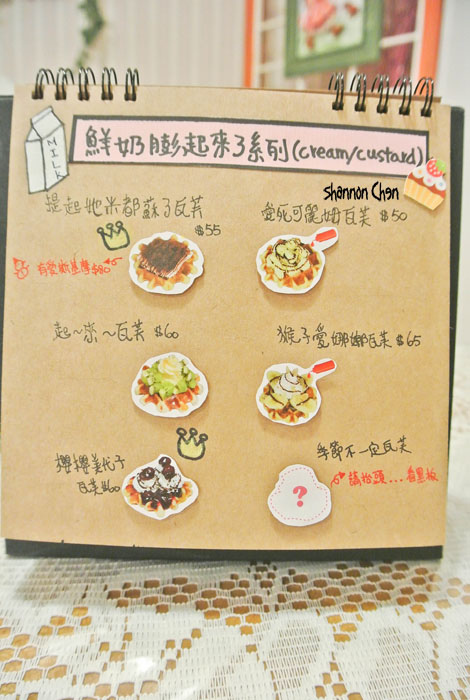 MILK
鮮奶膨起來了系列(cream/custard)
Shannon Chen
提起她米都蘇了瓦芙
$55
愛死可麗姆瓦芙 $50
起~來~瓦芙 $60
猴子愛娜娜瓦芙 $65
櫻櫻美代子
瓦芙 $60
季節不一定瓦芙
?
請抬頭...看黑板